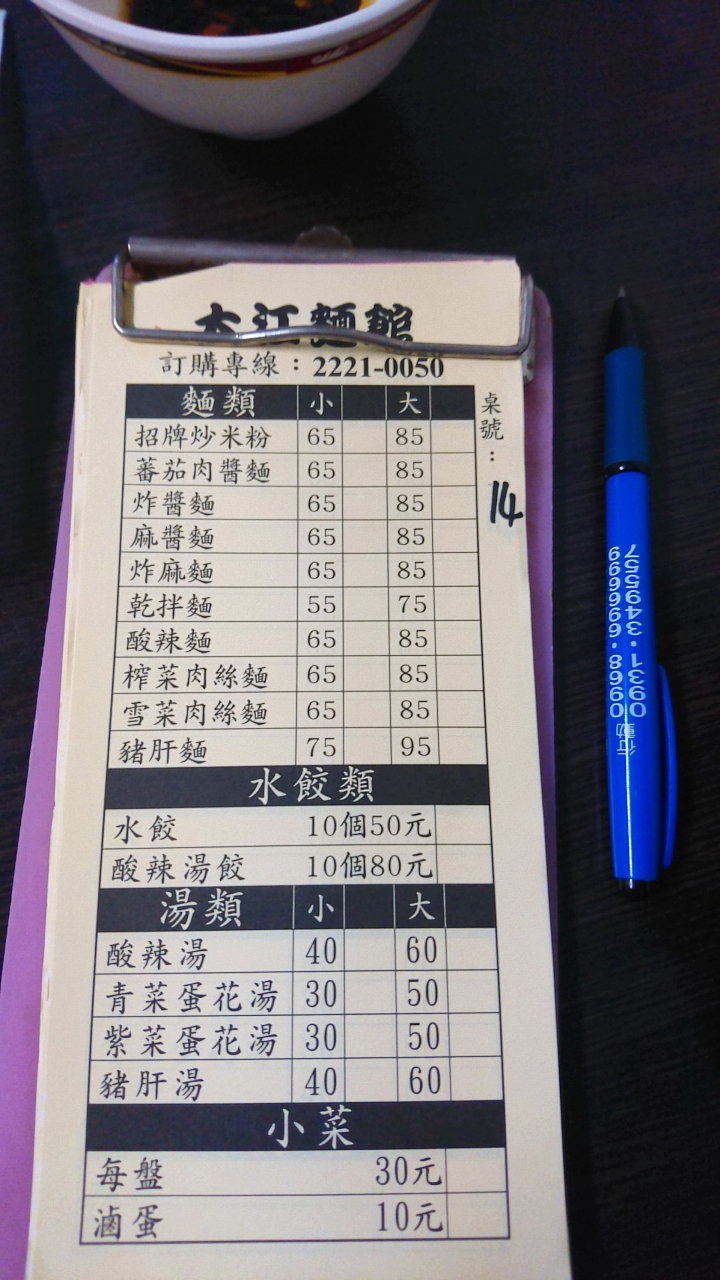 大江麵館
訂購專線：2221-0050
桌號：14
麵類 小 大
招牌炒米粉 65 85
蕃茄肉醬麵 65 85
炸醬麵 65 85
麻醬麵 65 85
炸麻麵 65 85
乾拌麵 55 75
酸辣麵 65 85
榨菜肉絲麵 65 85
雪菜肉絲麵 65 85
豬肝麵 75 95
水餃類
水餃 10個50元
酸辣湯餃 10個80元
湯類 小 大
酸辣湯 40 60
青菜蛋花湯 30 50
紫菜蛋花湯 30 50
豬肝湯 40 60
小菜
每盤 30元
滷蛋 10元
行動 0968·696699
0931·394557